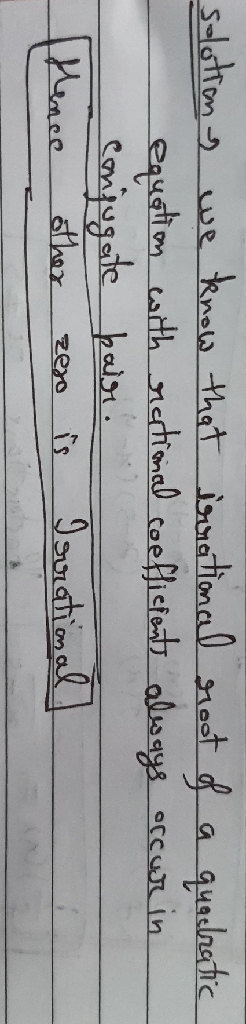 Solution → we know that irrational root of a quadratic
equation with rational coefficients always occur in
conjugate pair.
Hence other zero is Irrational